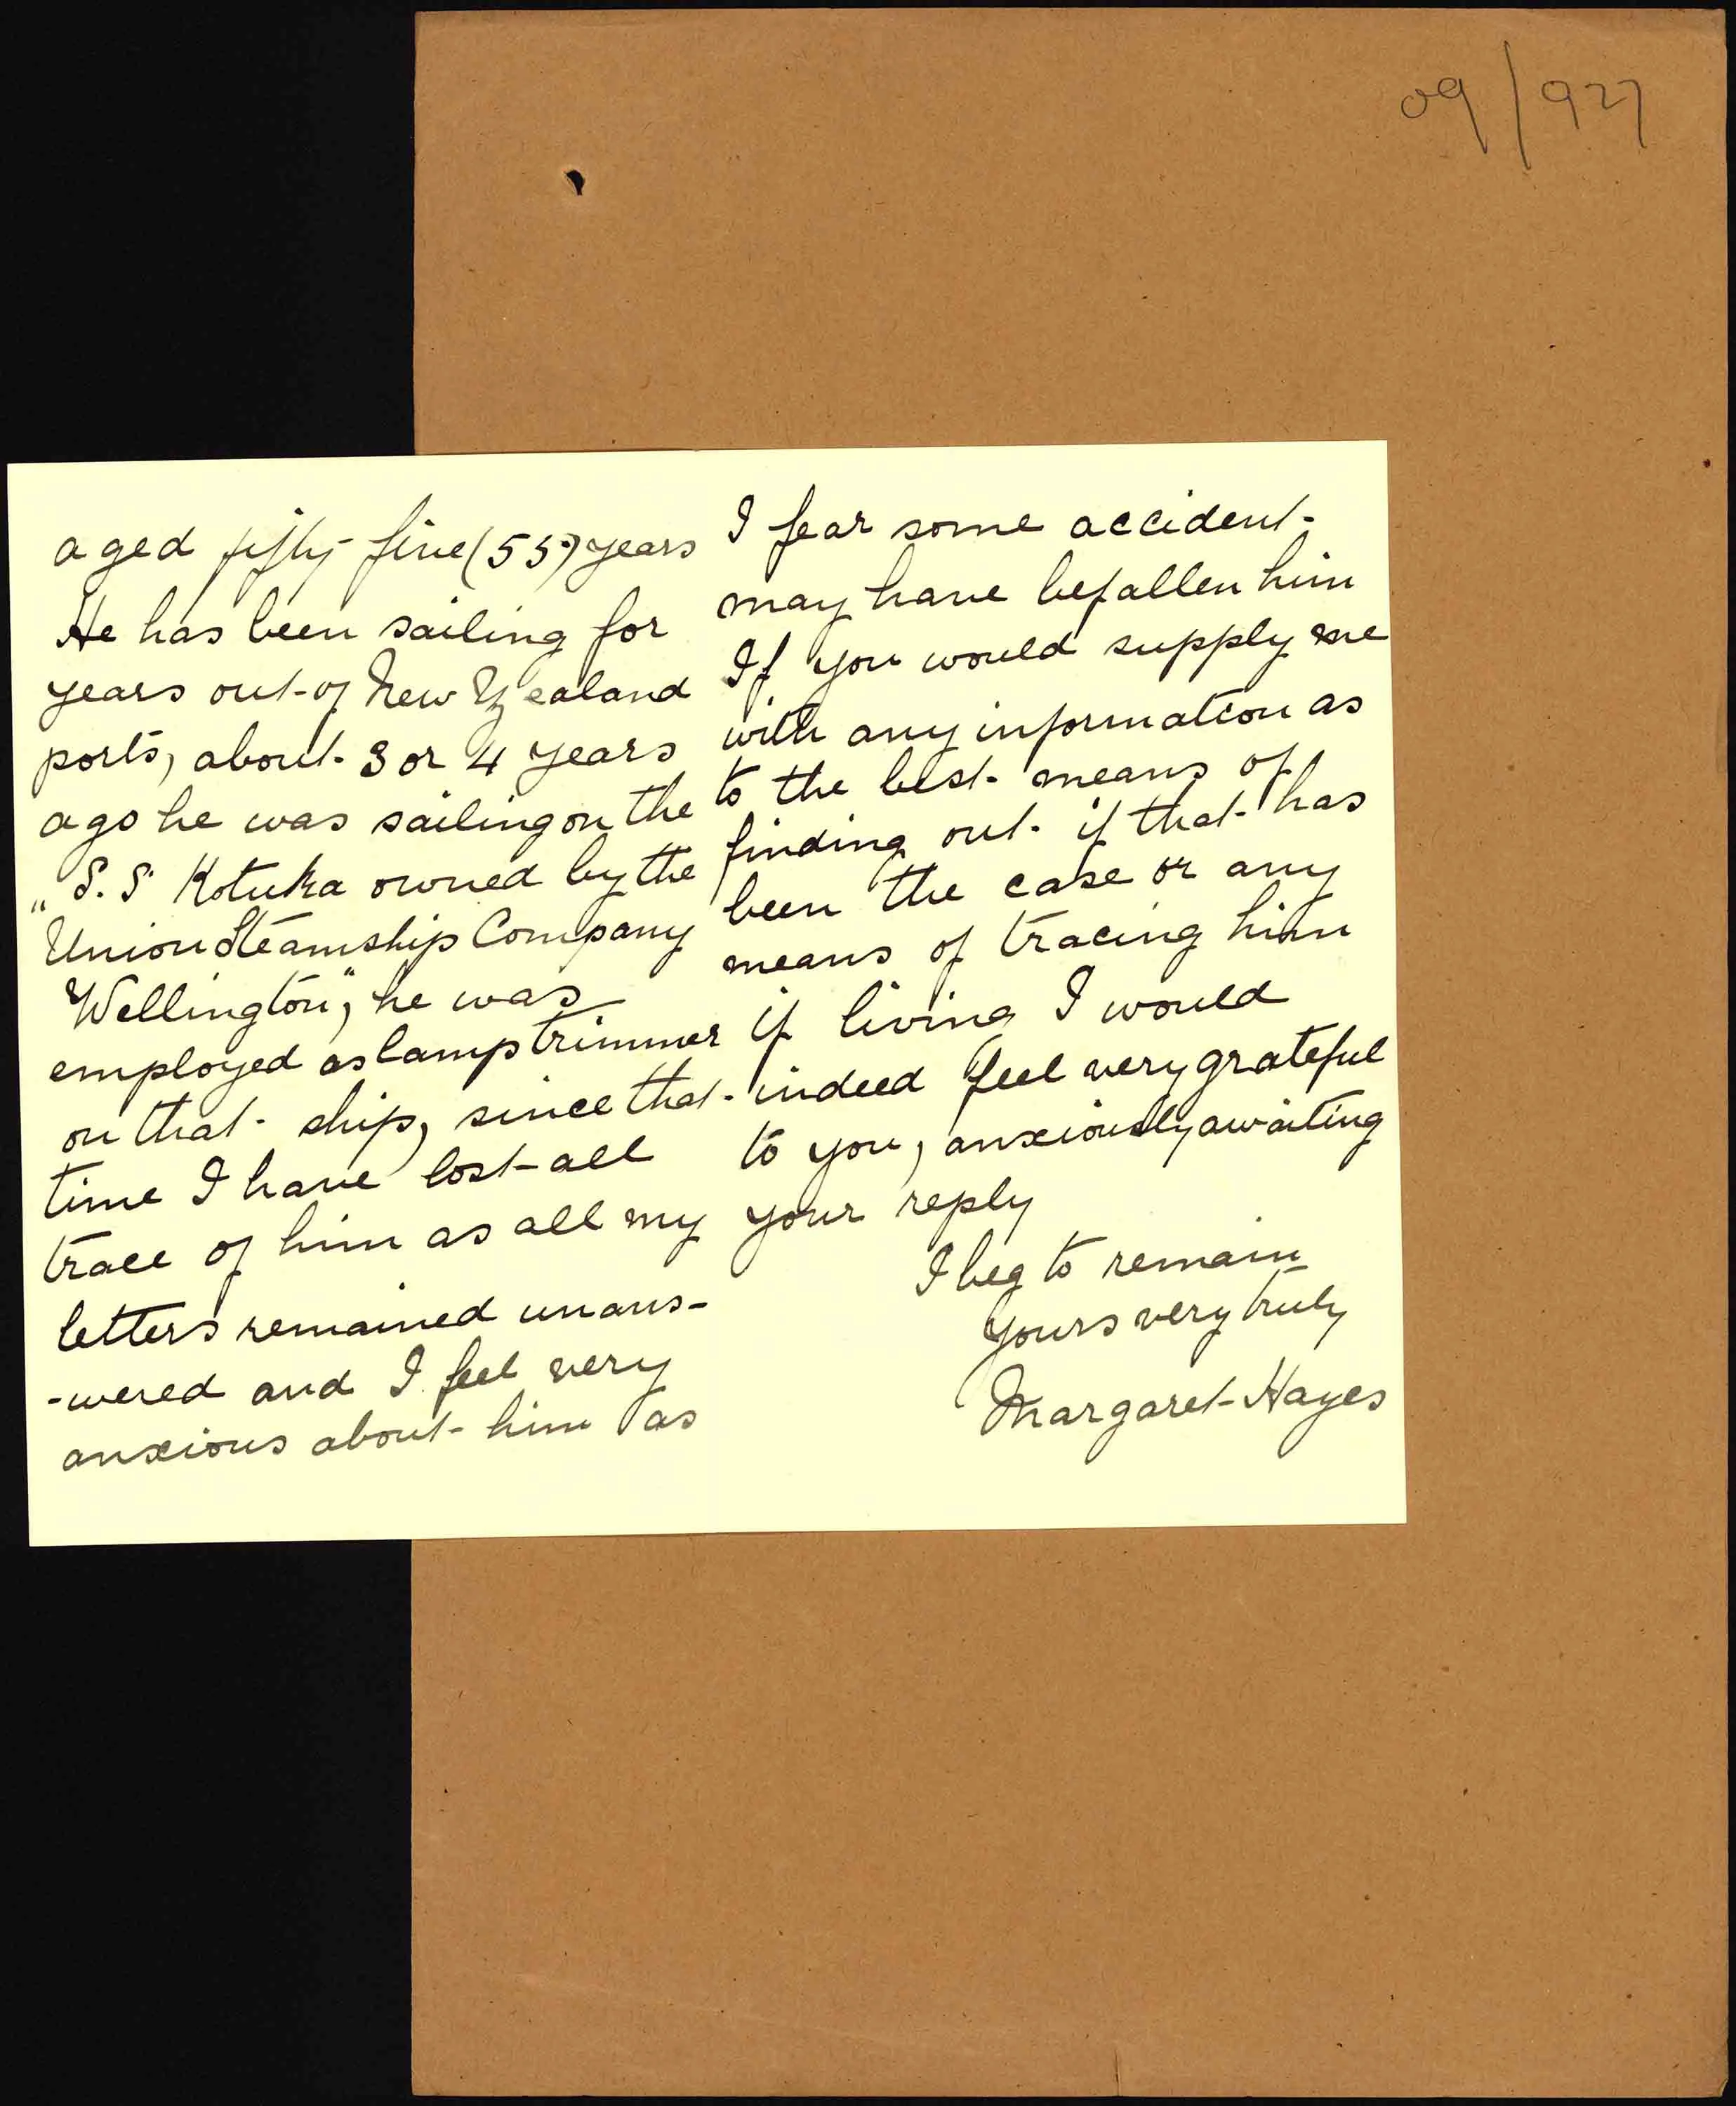 09/927
aged fifty five (55) years
He has been sailing for
years out of New Zealand
ports, about 3 or 4 years
ago he was sailing on the
"S. S Kotuka owned by the
Union Steamship Company
Wellington", he was
employed as lamp trimmer
on that ship, since that
time I have lost all
trace of him as all my
letters remained unans-
-wered and I feel very
anxious about him as
I fear some accident
may have befallen him
If you would supply me
with any information as
to the best means of
finding out if that has
been the case or any
means of tracing him
if living I would
indeed feel very grateful
to you, anxiously awaiting
your reply
I beg to remain
Yours very truly
Margaret Hayes